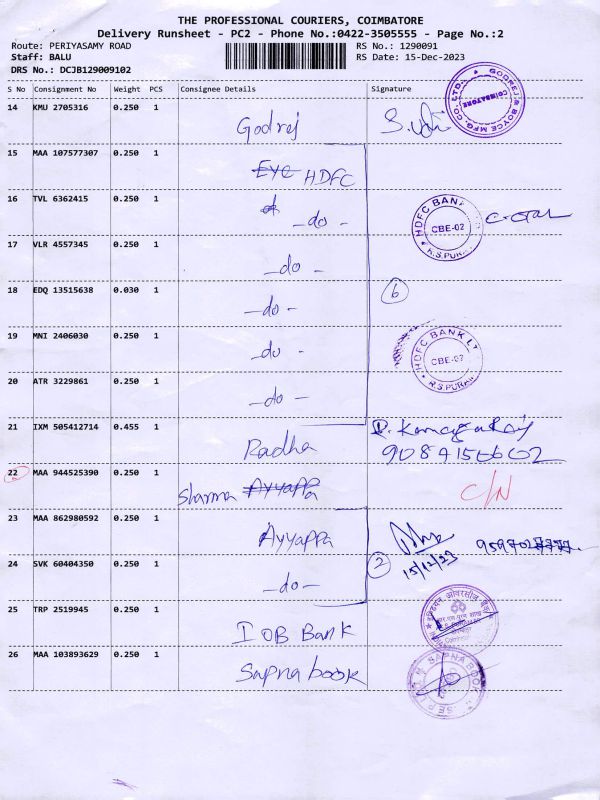 THE PROFESSIONAL COURIERS, COIMBATORE
Delivery Runsheet - PC2 - Phone No.:0422-3505555 - Page No.:2
Route: PERIYASAMY ROAD RS No.: 1290091
Staff: BALU RS Date: 15-Dec-2023
DRS No.: DCJB129009102
S No Consignment No Weight PCS Consignee Details Signature
14 KMU 2705316 0.250 1 Godrej
GODREJ & BOYCE MFG. CO. LTD. COIMBATORE
15 MAA 107577307 0.250 1 HDFC
16 TVL 6362415 0.250 1 -do-
HDFC BANK CBE-02 R.S.PURAM
17 VLR 4557345 0.250 1 -do-
18 EDQ 13515638 0.030 1 -do- 6
19 MNI 2406030 0.250 1 -do-
HDFC BANK LT CBE-07 R.S.PURAM
20 ATR 3229861 0.250 1 -do-
21 IXM 505412714 0.455 1 Radha
22 MAA 944525390 0.250 1 Sharma Ayyappa C/N
23 MAA 862980592 0.250 1 Ayyappa
24 SVK 60404350 0.250 1 -do- 2 15/12/23
25 TRP 2519945 0.250 1 IOB Bank
26 MAA 103893629 0.250 1 Sapna book
SAPNA BOOK